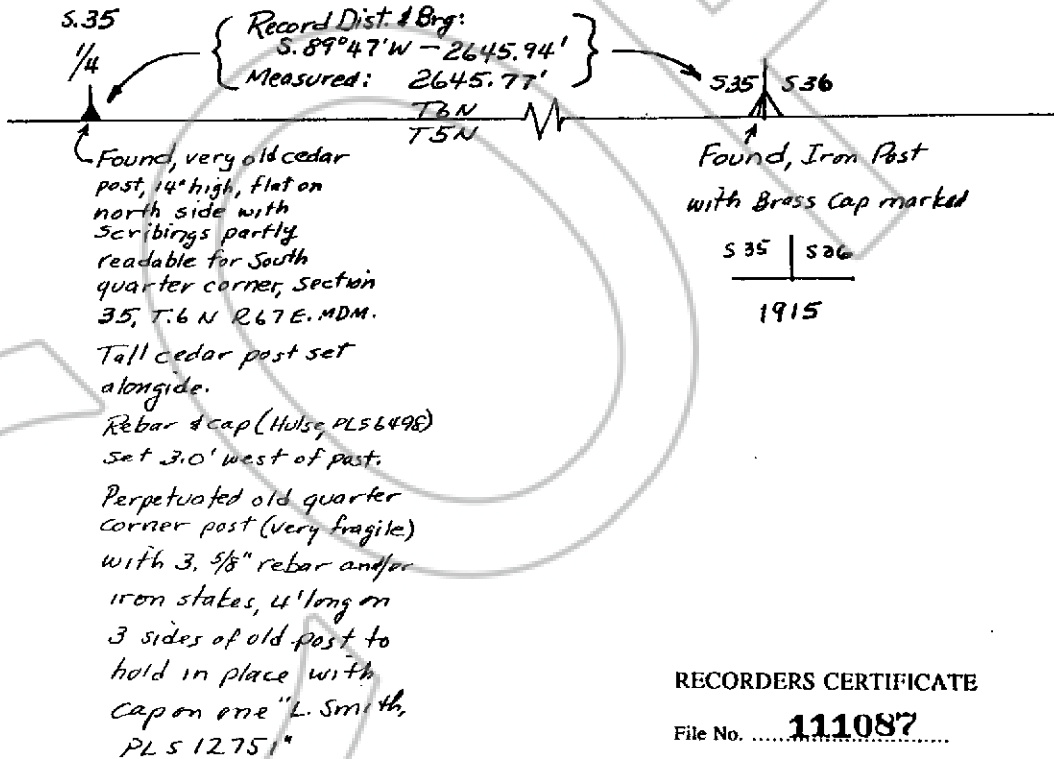 S.35
1/4
Record Dist. & Brg:
S. 89°47'W - 2645.94'
Measured: 2645.77'
T6N
T5N
S35 S36
Found, very old cedar
post, 14" high, flat on
north side with
Scribings partly
readable for South
quarter corner, Section
35, T.6 N R67E. MDM.
Tall cedar post set
alongide.
Rebar & cap (Hulse, PLS 6498)
set 3.0' west of post.
Perpetuated old quarter
corner post (very fragile)
with 3, 5/8" rebar and/or
iron stakes, 4' long on
3 sides of old post to
hold in place with
cap on one "L. Smith,
PLS 12751"
Found, Iron Post
with Brass Cap marked
S 35 | S 36
1915
RECORDERS CERTIFICATE
File No. ......111087......